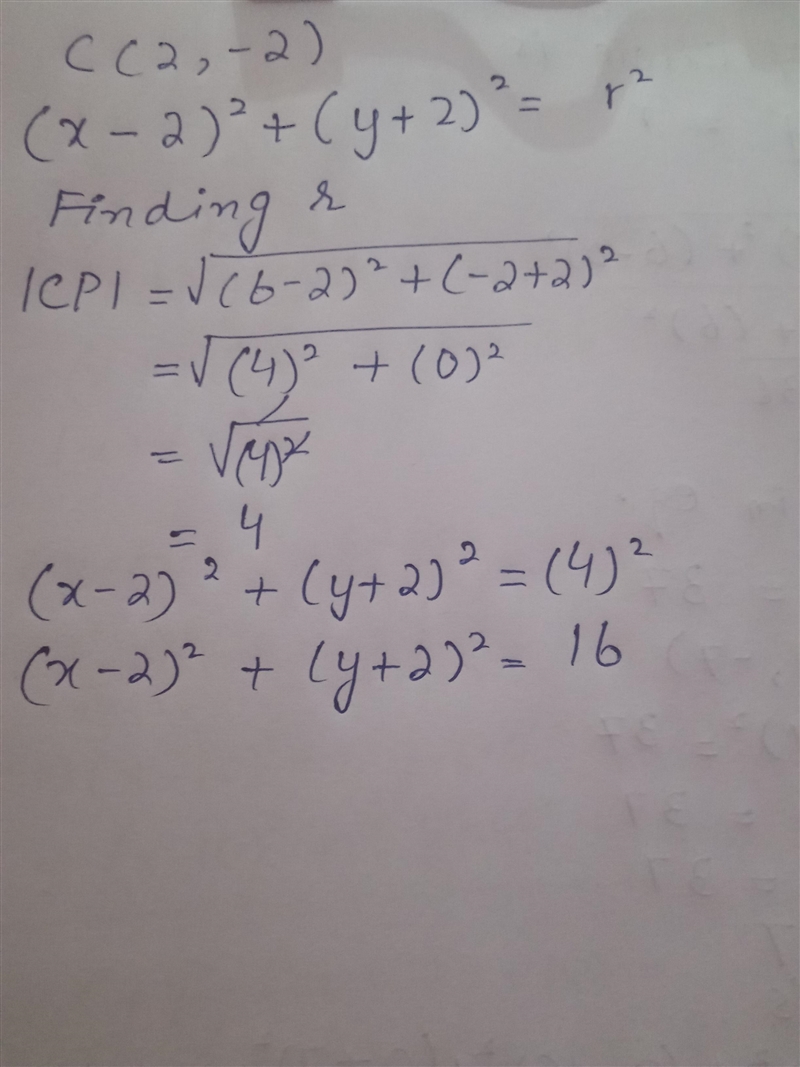 C(2,-2)
(x-2)² + (y+2)² = r²
Finding r
|CP| = √(6-2)² + (-2+2)²
= √(4)² + (0)²
= √(4)²
= 4
(x-2)² + (y+2)² = (4)²
(x-2)² + (y+2)² = 16